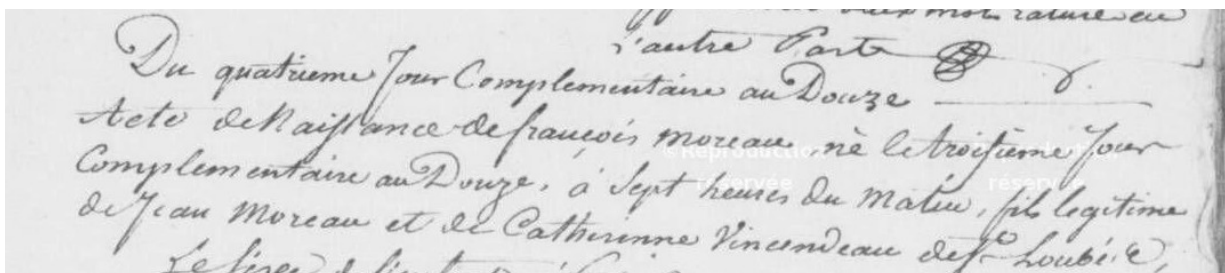 deux mots rature en
l'autre Parte
Du quatrieme Jour Complementaire an Douze
Acte de Naissance de françois Moreau né le troisieme Jour
Complementaire an Douze, à Sept heures du Matin, fils legitime
de Jean Moreau et de Catherinne Vincendeau de St Loubée
©Reproduction
réservée
réservée